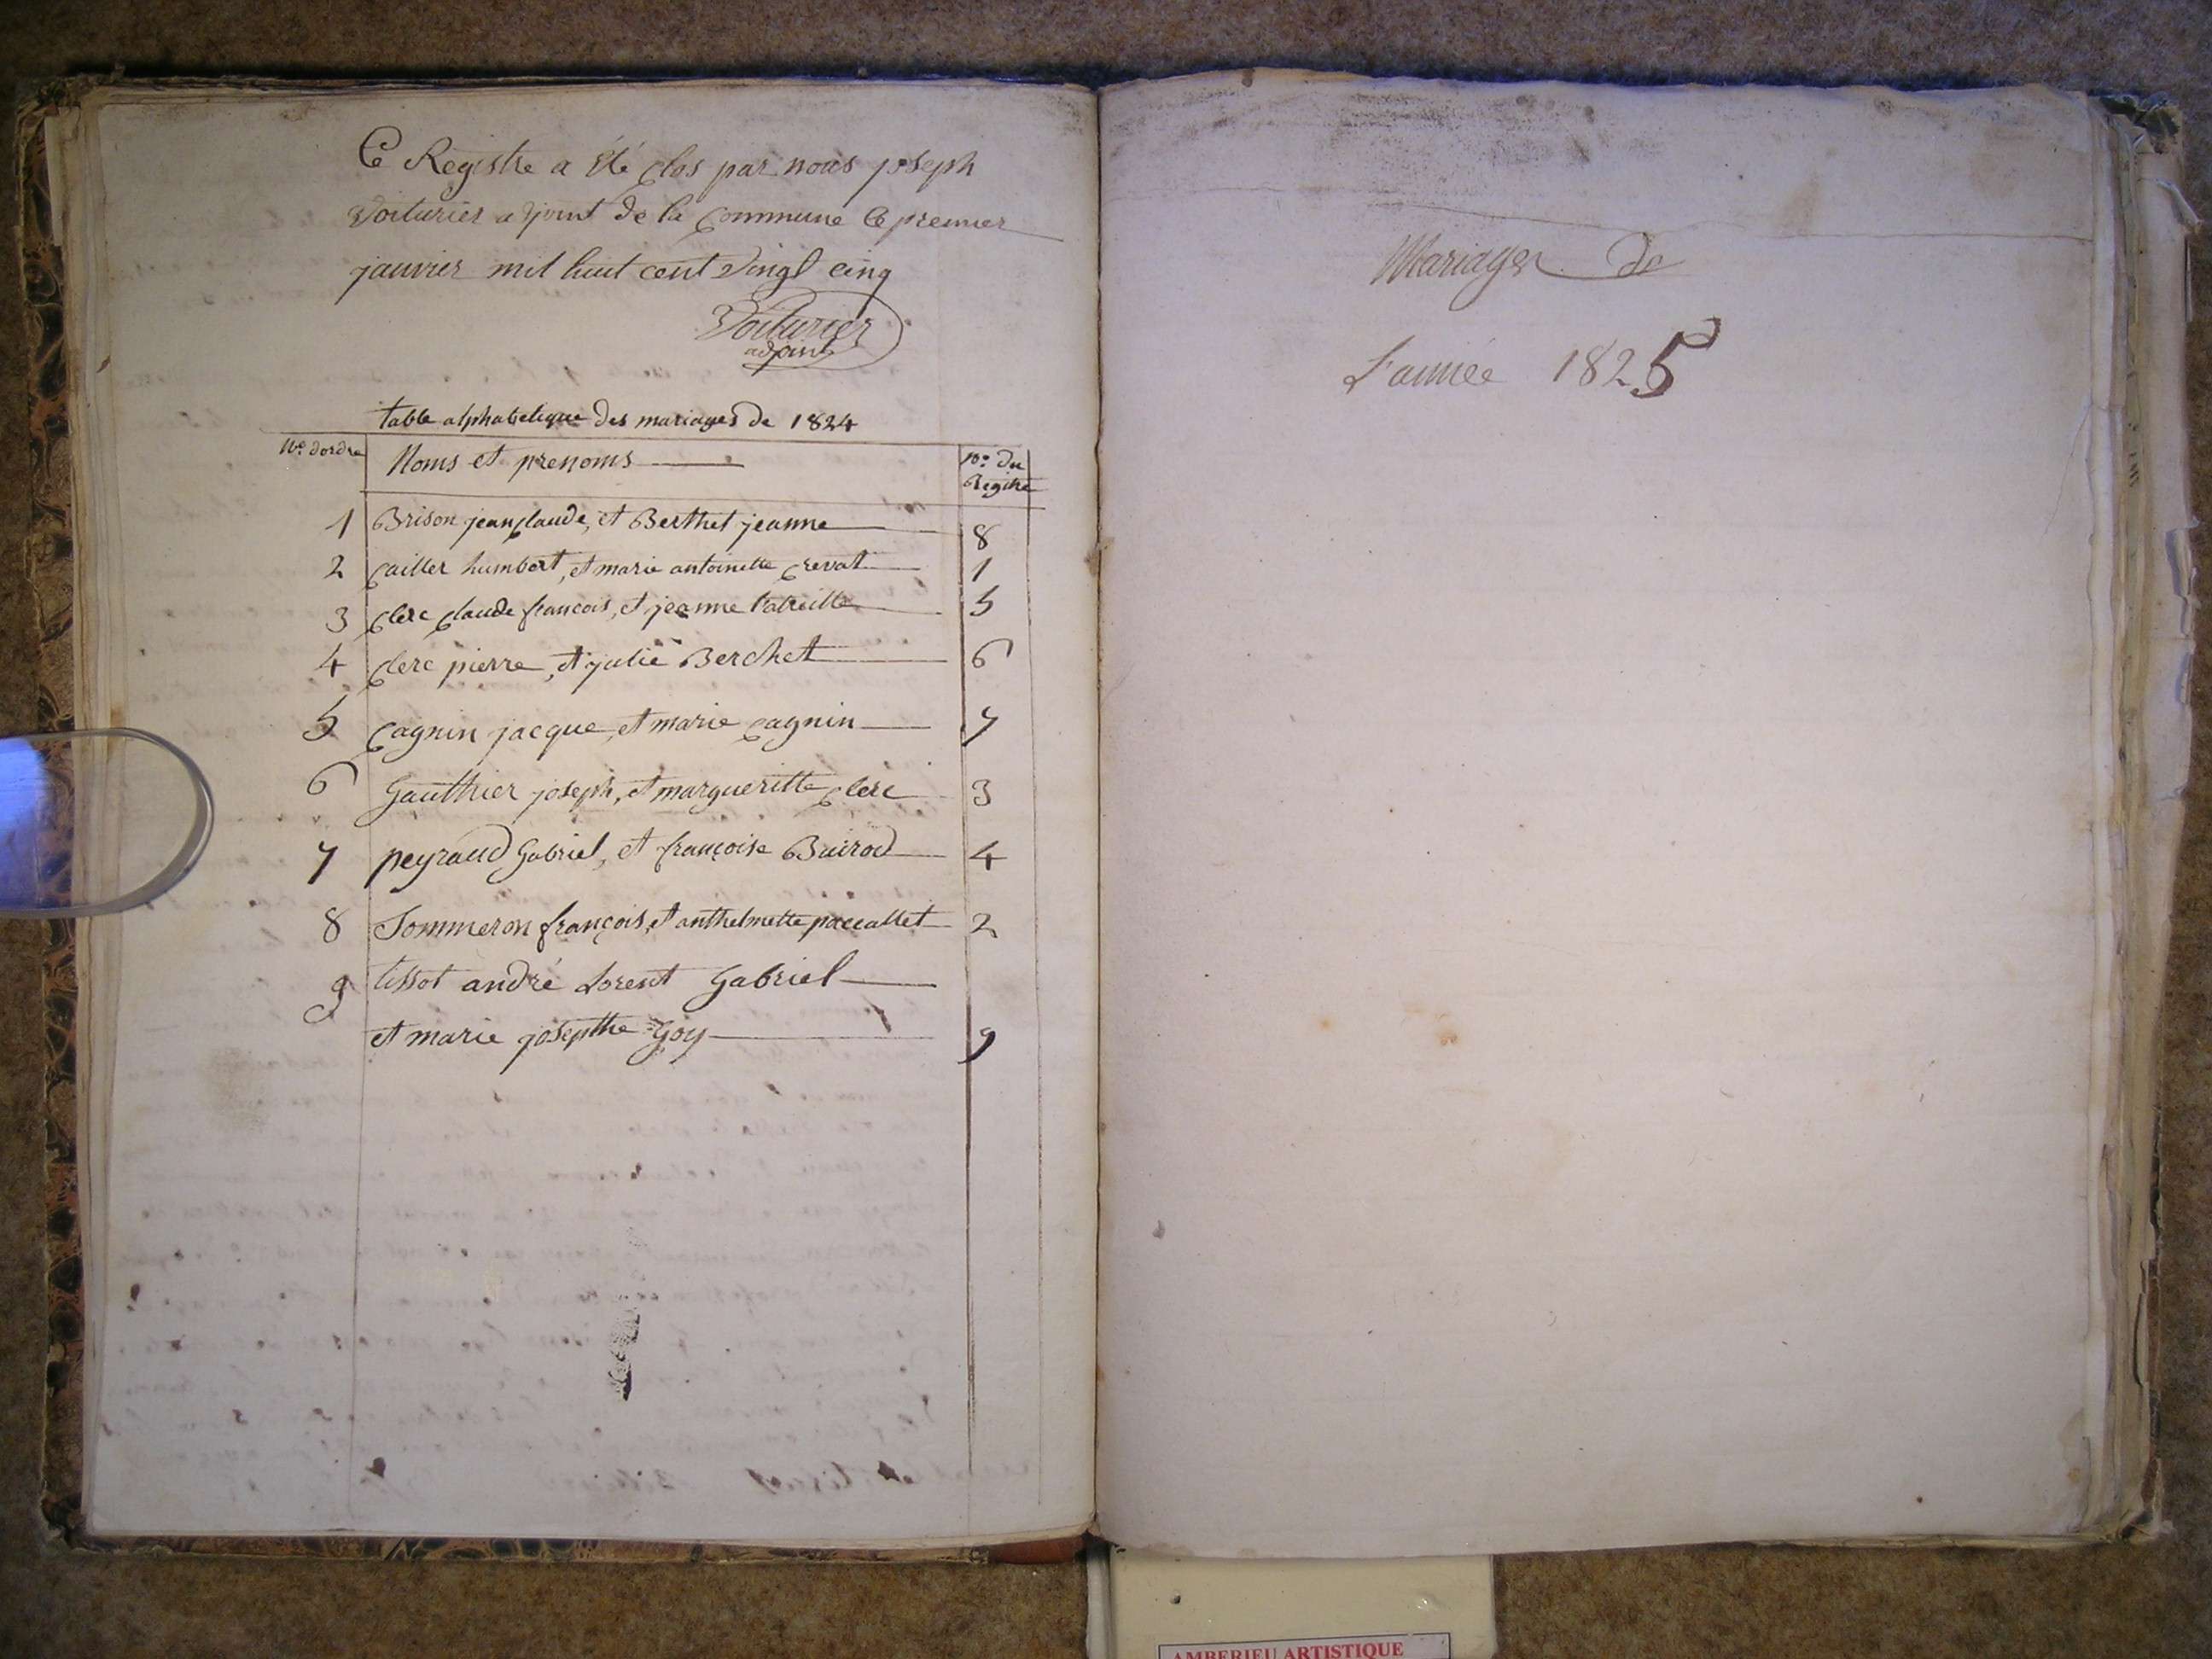 Ce Registre a été clos par nous joseph
Voiturier adjoint de la Commune le premier
janvier mil huit cent vingt cinq
Voiturier
adjoint
table alphabetique des mariages de 1824
No. dordre Noms et prenoms No. du Registre
1 Brison jean claude, et Berthet jeanne 8
2 Cailler humbert, et marie antoinette Crevat 1
3 Clerc Claude françois, et jeanne 5
4 Clerc pierre, et julie Berchet 6
5 Cagnin jacque, et marie Cagnin 7
6 Gauthier joseph, et margueritte Clerc 3
7 peyraud Gabriel, et françoise 4
8 Sommeron françois, et anthelmette paccallet 2
9 tissot andré Lorent Gabriel
et marie josepthe Goy 9
Mariages de
L'année 1825
AMBERIEU ARTISTIQUE